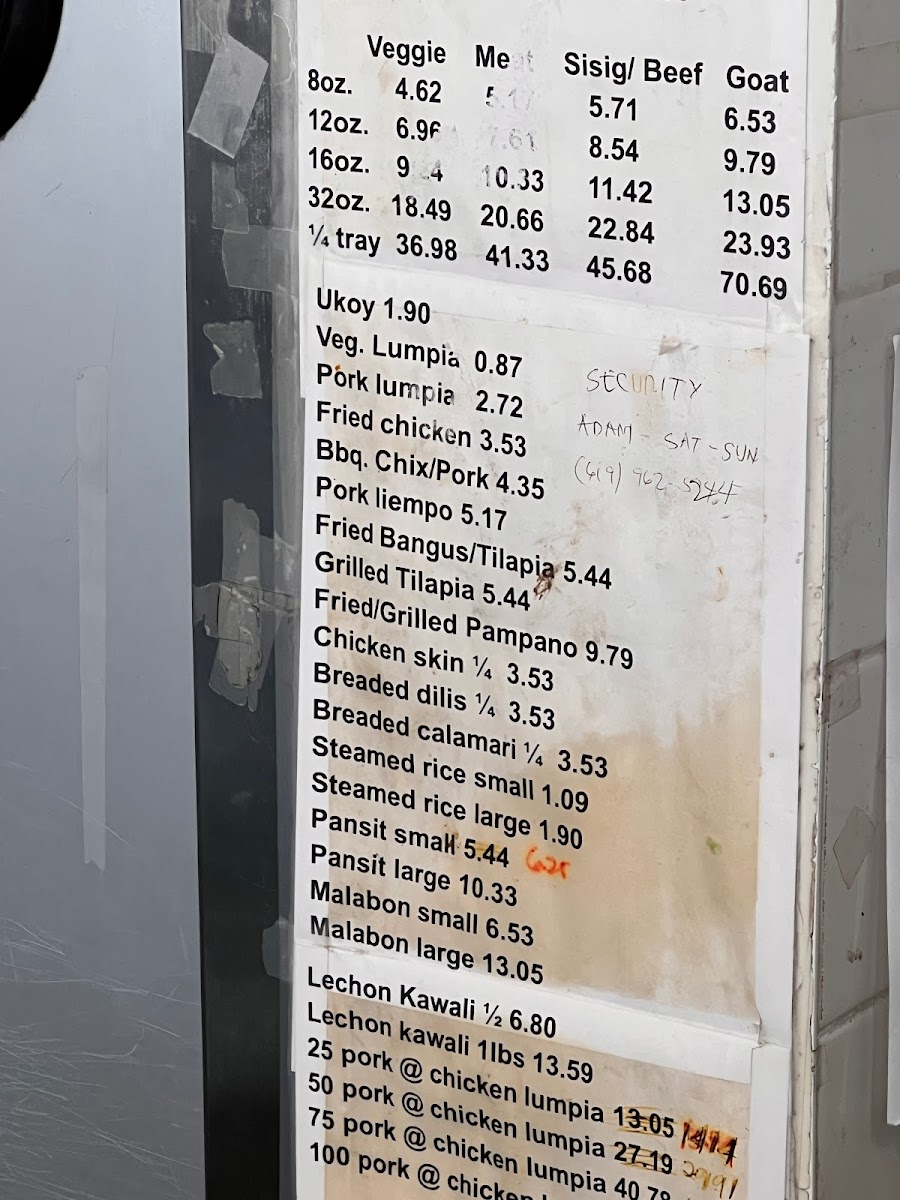 Veggie Meat Sisig/ Beef Goat
8oz. 4.62 5.17 5.71 6.53
12oz. 6.96 7.61 8.54 9.79
16oz. 10.33 11.42 13.05
32oz. 18.49 20.66 22.84 23.93
¼ tray 36.98 41.33 45.68 70.69
Ukoy 1.90
Veg. Lumpia 0.87
Pork lumpia 2.72
Fried chicken 3.53
Bbq. Chix/Pork 4.35
Pork liempo 5.17
Fried Bangus/Tilapia 5.44
Grilled Tilapia 5.44
Fried/Grilled Pampano 9.79
Chicken skin ¼ 3.53
Breaded dilis ¼ 3.53
Breaded calamari ¼ 3.53
Steamed rice small 1.09
Steamed rice large 1.90
Pansit small 5.44
Pansit large 10.33
Malabon small 6.53
Malabon large 13.05
SECURITY
ADAM - SAT - SUN
(619) 962-5244
Lechon Kawali ½ 6.80
Lechon kawali 1lbs 13.59
25 pork @ chicken lumpia 13.05
50 pork @ chicken lumpia 27.19
75 pork @ chicken lumpia 40.78
100 pork @ chicken